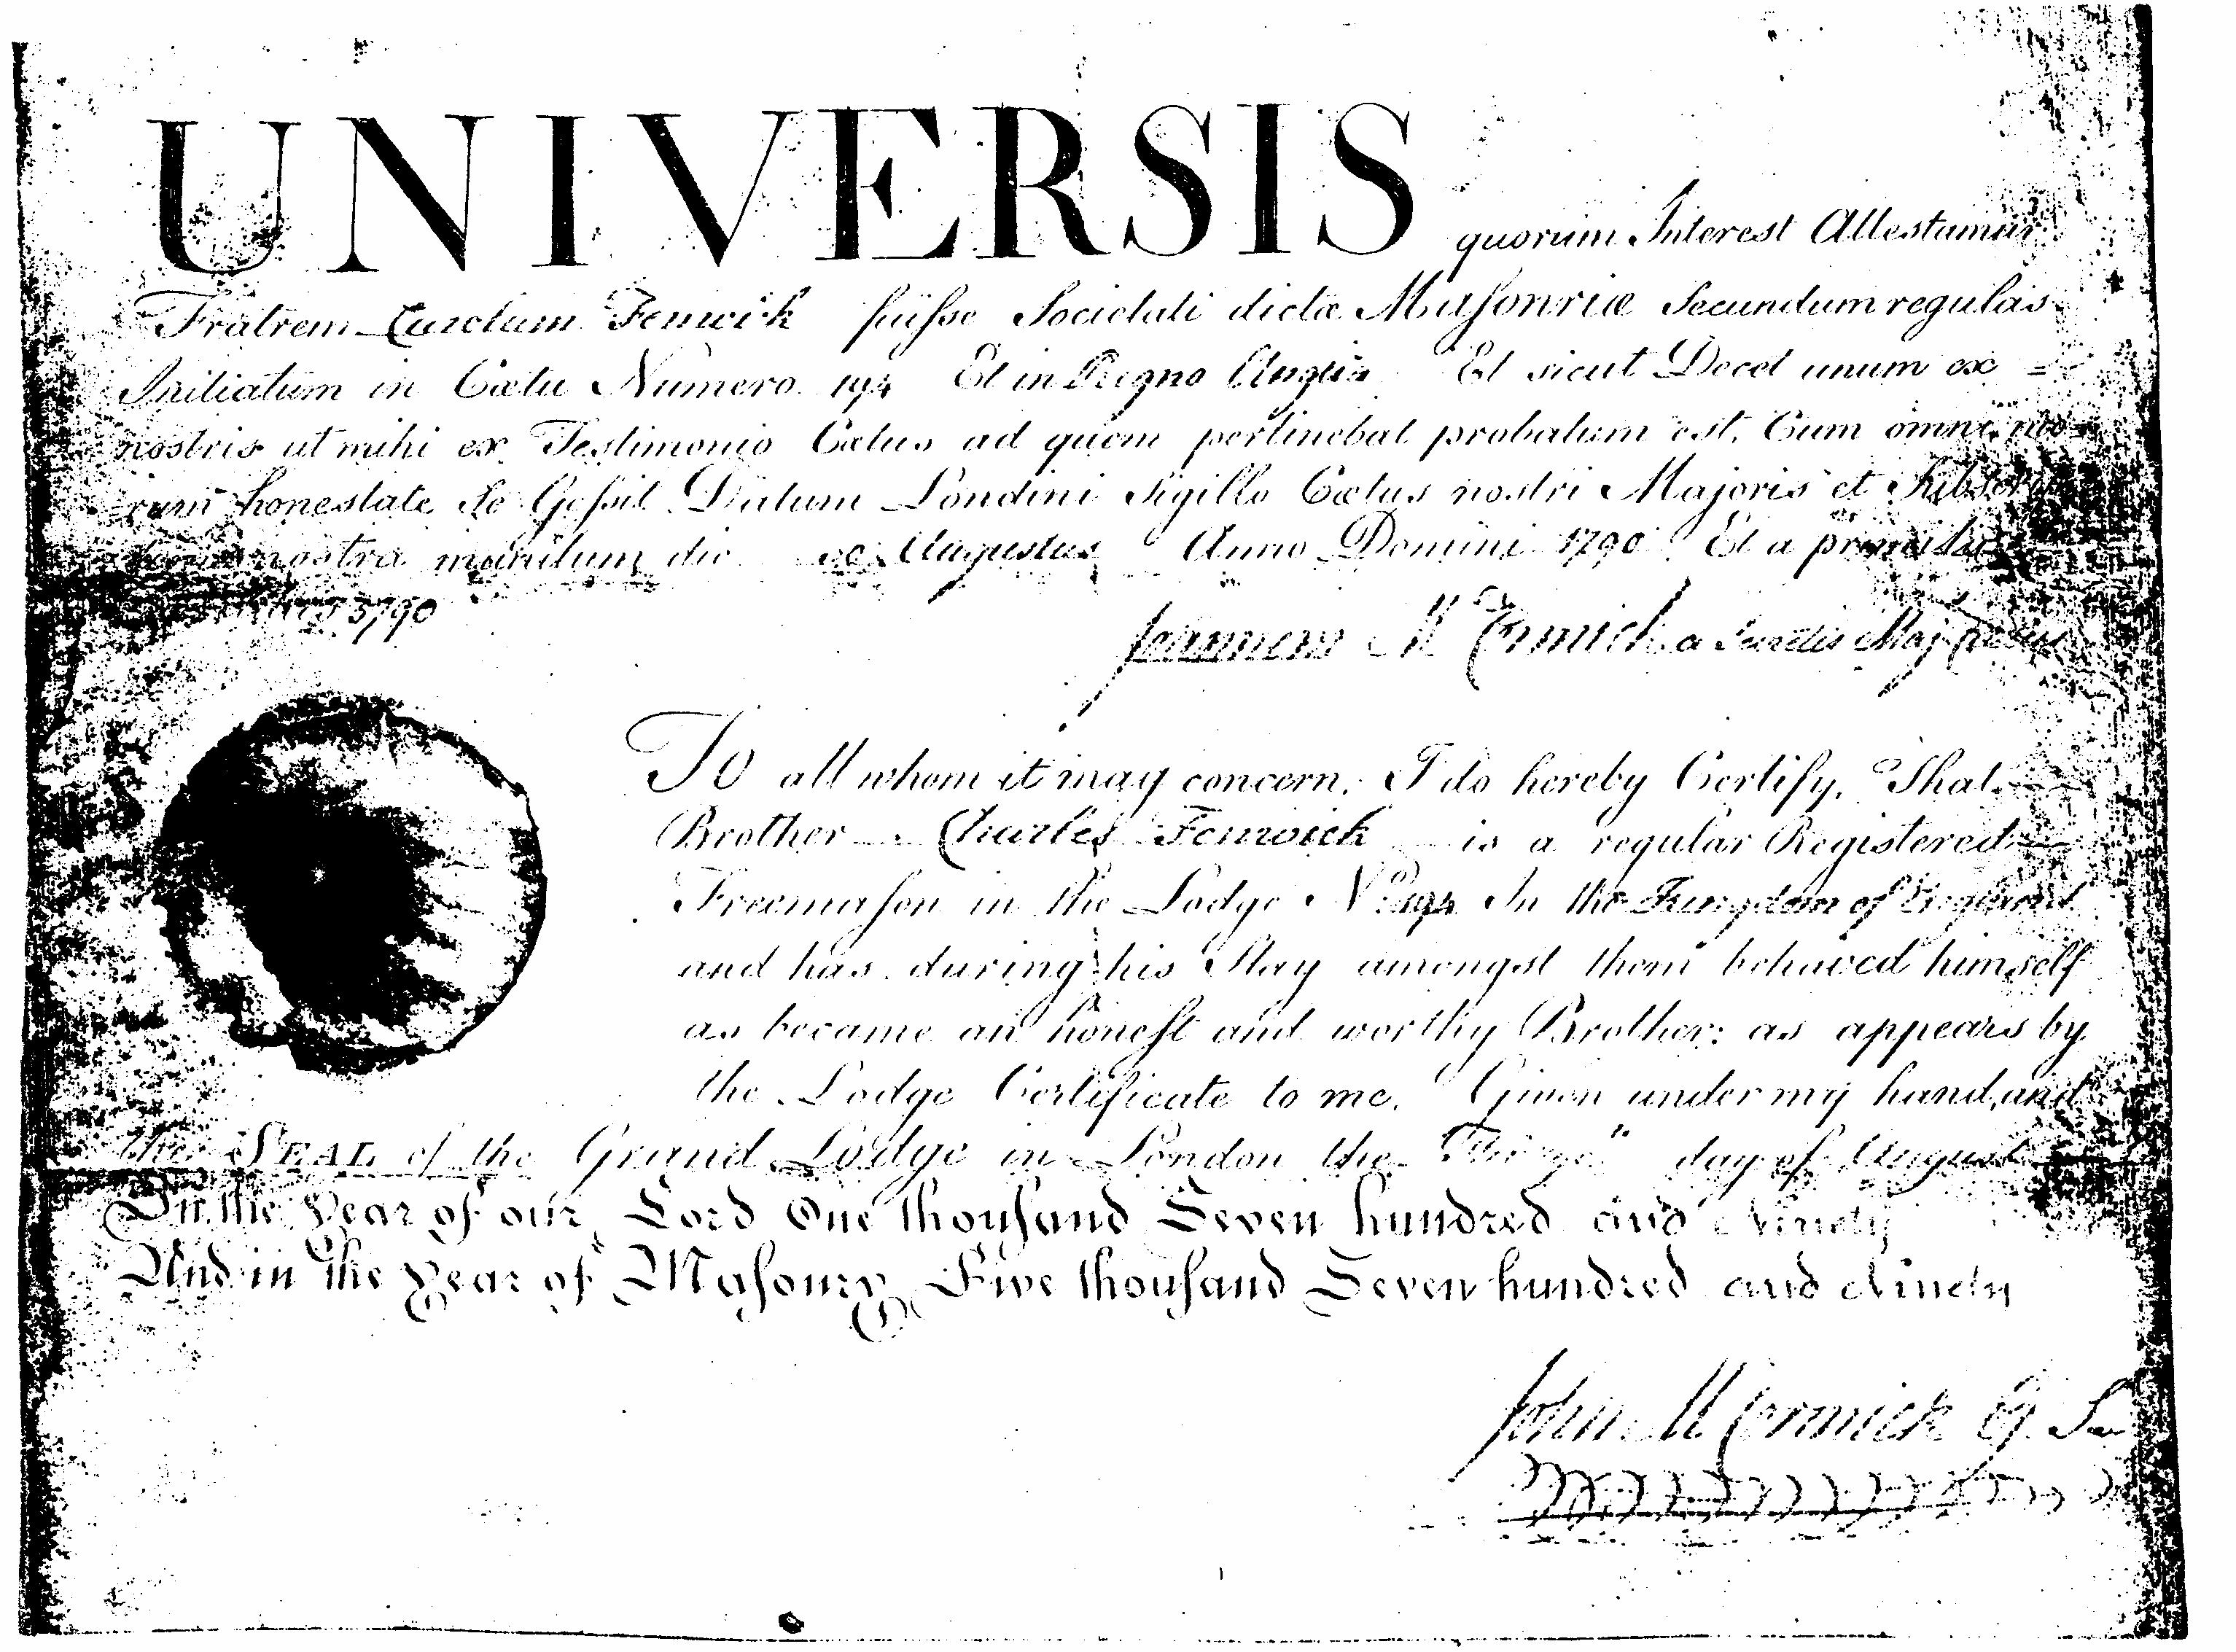 UNIVERSIS quorum Interest Attestamur
Fratrem Carolum Fenwick fuisse Societati dictæ Masonriæ Secundum regulas
Initiatum in Cœtu Numero 194 Et in Regno Anglia Et sicut Decet unum ex =
nostris ut mihi ex Testimonio Cœtus ad quem pertinebat probatum est, Cum omni mo=
=rum honestate Se Gessit Datum Londini Sigillo Cœtus nostri Majoris et
nostra die Augustus Anno Domini 1790 Et a
5790
Johannem McCormick a Maj Cœtus
To all whom it may concern, I do hereby Certify, That
Brother Charles Fenwick is a regular Registered
Freemason in the Lodge No. 194 In the Kingdom of England
and has during his Stay amongst them behaved himself
as became an honest and worthy Brother: as appears by
the Lodge Certificate to me. Given under my hand, and
the SEAL of the Grand Lodge in London the day of August
In the Year of our Lord One thousand Seven hundred and Ninety
And in the Year of Masonry Five thousand Seven hundred and Ninety
John McCormick